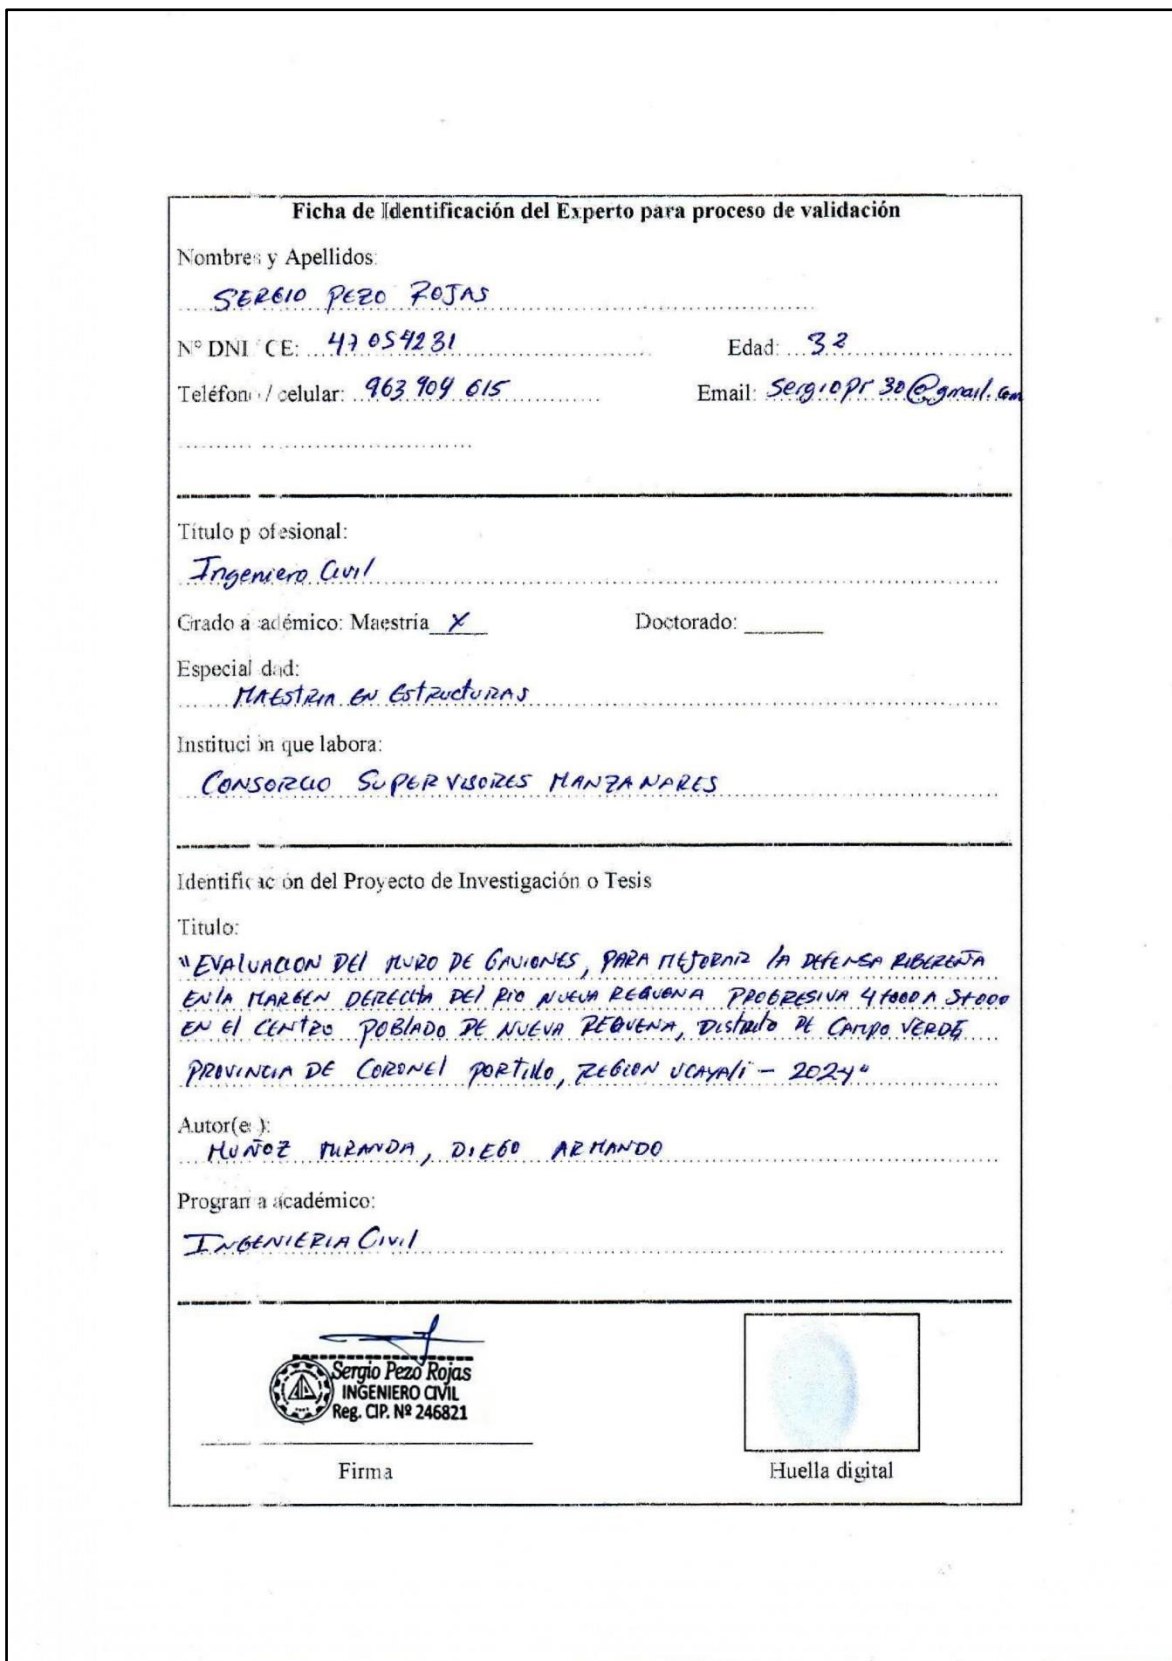 Ficha de Identificación del Experto para proceso de validación
Nombres y Apellidos:
SERGIO PEZO ROJAS
N° DNI CE: 47054231 Edad: 32
Teléfono / celular: 963 904 615 Email: sergiopr30@gmail.com
Título p ofesional:
Ingeniero Civil
Grado a adémico: Maestría X Doctorado:
Especial dad:
MAESTRIA EN ESTRUCTURAS
Instituci ón que labora:
CONSORCIO SUPERVISORES MANZANARES
Identificac ón del Proyecto de Investigación o Tesis
Titulo:
"EVALUACION DEL MURO DE GAVIONES, PARA MEJORAR LA DEFENSA RIBEREÑA
EN LA MARGEN DERECHA DEL RIO NUEVA REQUENA PROGRESIVA 4+000 A 5+000
EN EL CENTRO POBLADO DE NUEVA REQUENA, DISTRITO DE CAMPO VERDE,
PROVINCIA DE CORONEL PORTILLO, REGION UCAYALI - 2024"
Autor(es):
MUÑOZ MIRANDA, DIEGO ARMANDO
Program a académico:
INGENIERIA CIVIL
Sergio Pezo Rojas
INGENIERO CIVIL
Reg. CIP. Nº 246821
Firma Huella digital